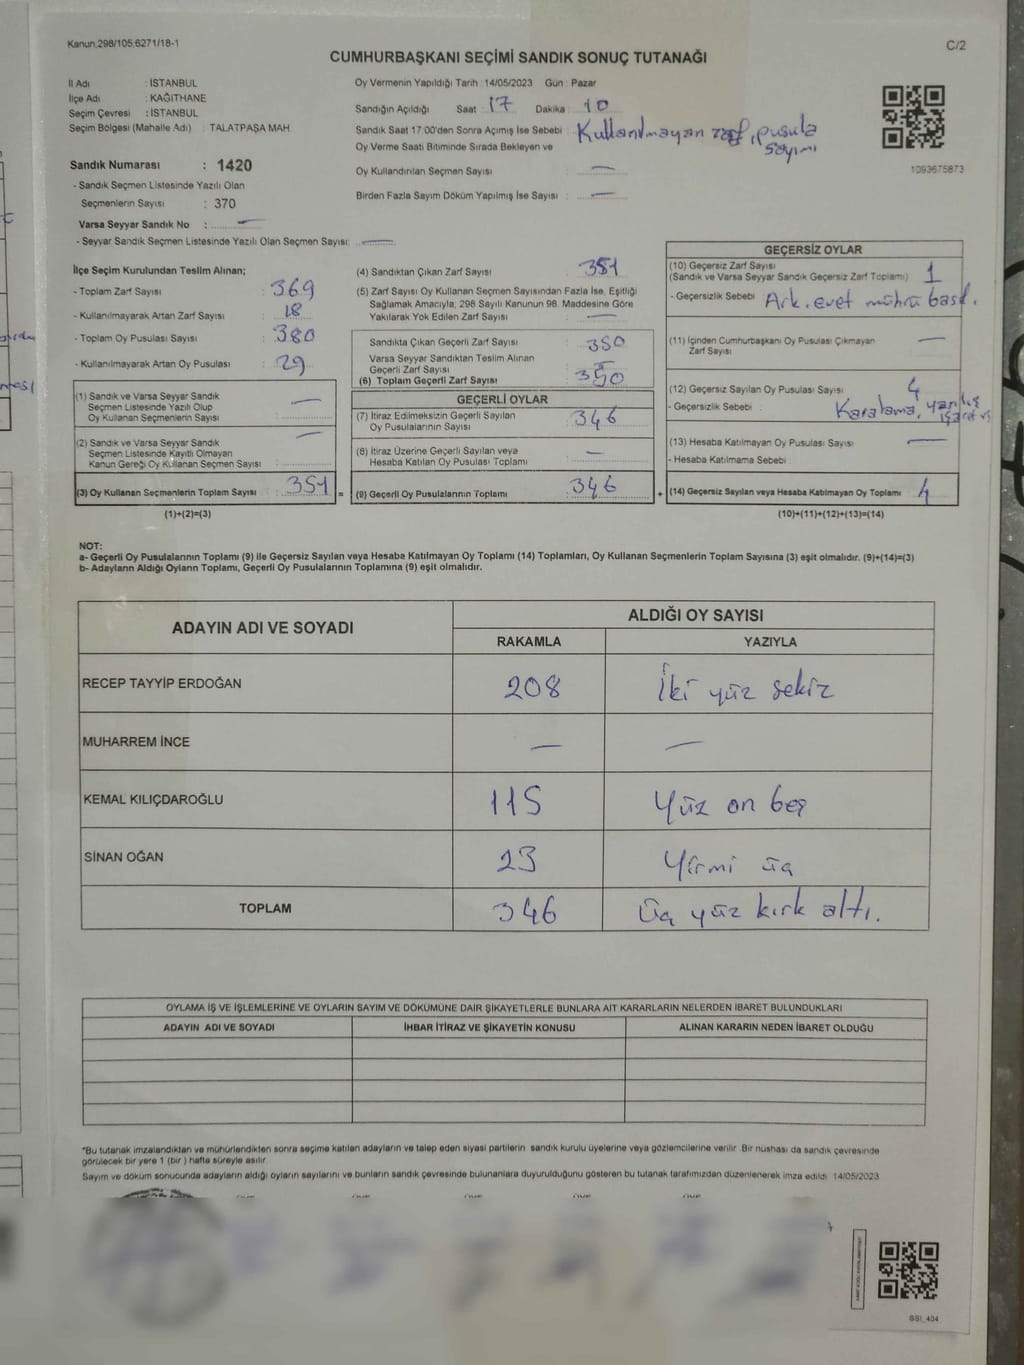 Kanun.298/105,6271/18-1
C/2
CUMHURBAŞKANI SEÇİMİ SANDIK SONUÇ TUTANAĞI
İl Adı : İSTANBUL
İlçe Adı : KAĞITHANE
Seçim Çevresi : İSTANBUL
Seçim Bölgesi (Mahalle Adı) : TALATPAŞA MAH.
Sandık Numarası : 1420
- Sandık Seçmen Listesinde Yazılı Olan
Seçmenlerin Sayısı : 370
Varsa Seyyar Sandık No : —
- Seyyar Sandık Seçmen Listesinde Yazılı Olan Seçmen Sayısı: —
Oy Vermenin Yapıldığı Tarih :14/05/2023 Gün : Pazar
Sandığın Açıldığı Saat : 17 Dakika : 10
Sandık Saat 17:00'den Sonra Açımış İse Sebebi : Kullanılmayan zarf, pusula sayımı
Oy Verme Saati Bitiminde Sırada Bekleyen ve
Oy Kullandırılan Seçmen Sayısı : —
Birden Fazla Sayım Döküm Yapılmış İse Sayısı : —
1093675873
İlçe Seçim Kurulundan Teslim Alınan;
- Toplam Zarf Sayısı : 369
- Kullanılmayarak Artan Zarf Sayısı : 18
- Toplam Oy Pusulası Sayısı : 380
- Kullanılmayarak Artan Oy Pusulası : 29
(1) Sandık ve Varsa Seyyar Sandık
Seçmen Listesinde Yazılı Olup
Oy Kullanan Seçmenlerin Sayısı : —
(2) Sandık ve Varsa Seyyar Sandık
Seçmen Listesinde Kayıtlı Olmayan
Kanun Gereği Oy Kullanan Seçmen Sayısı : —
(3) Oy Kullanan Seçmenlerin Toplam Sayısı : 351 =
(1)+(2)=(3)
(4) Sandıktan Çıkan Zarf Sayısı : 351
(5) Zarf Sayısı Oy Kullanan Seçmen Sayısından Fazla İse, Eşitliği
Sağlamak Amacıyla; 298 Sayılı Kanunun 98. Maddesine Göre
Yakılarak Yok Edilen Zarf Sayısı : —
Sandıkta Çıkan Geçerli Zarf Sayısı : 350
Varsa Seyyar Sandıktan Teslim Alınan
Geçerli Zarf Sayısı : —
(6) Toplam Geçerli Zarf Sayısı : 350
GEÇERLİ OYLAR
(7) İtiraz Edilmeksizin Geçerli Sayılan
Oy Pusulalarının Sayısı : 346
(8) İtiraz Üzerine Geçerli Sayılan veya
Hesaba Katılan Oy Pusulası Toplamı : —
(9) Geçerli Oy Pusulalarının Toplamı : 346 +
GEÇERSİZ OYLAR
(10) Geçersiz Zarf Sayısı
(Sandık ve Varsa Seyyar Sandık Geçersiz Zarf Toplamı) : 1
- Geçersizlik Sebebi : Ark. evet mührü basıl.
(11) İçinden Cumhurbaşkanı Oy Pusulası Çıkmayan
Zarf Sayısı : —
(12) Geçersiz Sayılan Oy Pusulası Sayısı : 4
- Geçersizlik Sebebi : Karalama, yanlış işaret vs
(13) Hesaba Katılmayan Oy Pusulası Sayısı : —
- Hesaba Katılmama Sebebi :
(14) Geçersiz Sayılan veya Hesaba Katılmayan Oy Toplamı : 4
(10)+(11)+(12)+(13)=(14)
NOT:
a- Geçerli Oy Pusulalarının Toplamı (9) ile Geçersiz Sayılan veya Hesaba Katılmayan Oy Toplamı (14) Toplamları, Oy Kullanan Seçmenlerin Toplam Sayısına (3) eşit olmalıdır. (9)+(14)=(3)
b- Adayların Aldığı Oyların Toplamı, Geçerli Oy Pusulalarının Toplamına (9) eşit olmalıdır.
ADAYIN ADI VE SOYADI
ALDIĞI OY SAYISI
RAKAMLA YAZIYLA
RECEP TAYYİP ERDOĞAN 208 İki yüz sekiz
MUHARREM İNCE — —
KEMAL KILIÇDAROĞLU 115 Yüz on beş
SİNAN OĞAN 23 Yirmi üç
TOPLAM 346 Üç yüz kırk altı.
OYLAMA İŞ VE İŞLEMLERİNE VE OYLARIN SAYIM VE DÖKÜMÜNE DAİR ŞİKAYETLERLE BUNLARA AİT KARARLARIN NELERDEN İBARET BULUNDUKLARI
ADAYIN ADI VE SOYADI İHBAR İTİRAZ VE ŞİKAYETİN KONUSU ALINAN KARARIN NEDEN İBARET OLDUĞU
*Bu tutanak imzalandıktan ve mühürlendikten sonra seçime katılan adayların ve talep eden siyasi partilerin sandık kurulu üyelerine veya gözlemcilerine verilir. Bir nüshası da sandık çevresinde
görülecek bir yere 1 (bir ) hafta süreyle asılır.
Sayım ve döküm sonucunda adayların aldığı oyların sayılarını ve bunların sandık çevresinde bulunanlara duyurulduğunu gösteren bu tutanak tarafımızdan düzenlenerek imza edildi. 14/05/2023
SSI_404